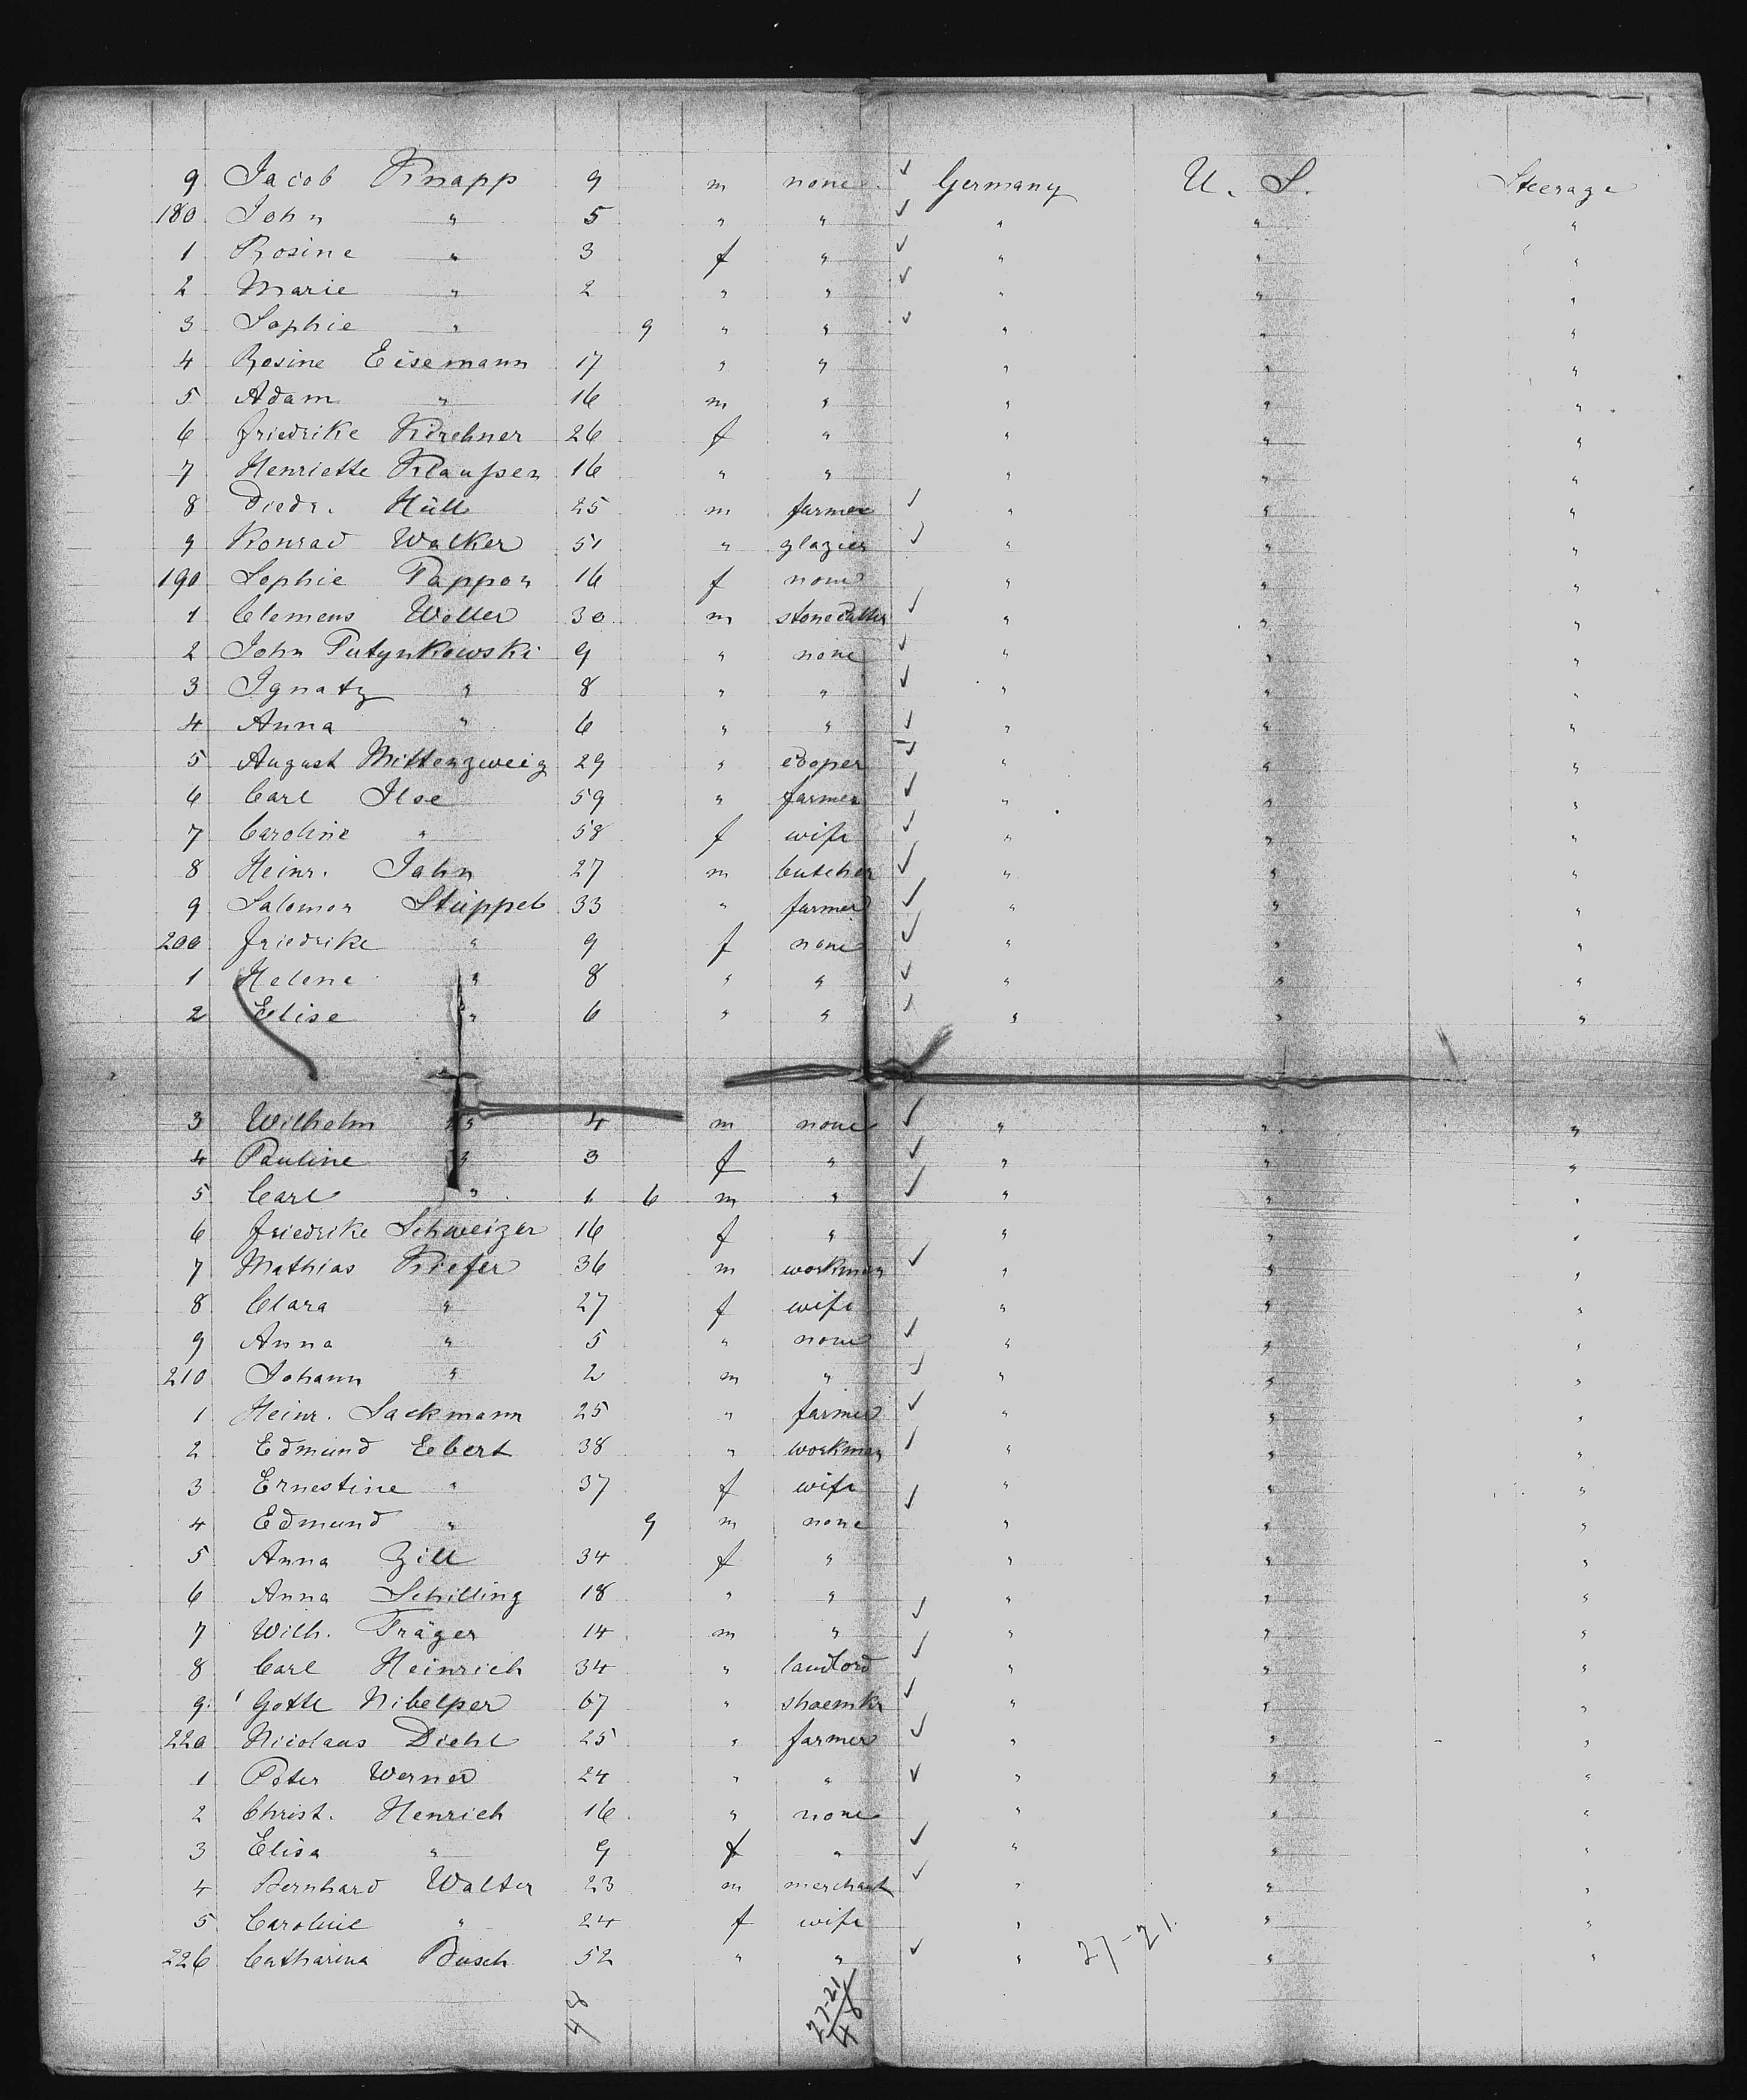 9 Jacob Knapp 9 m none ✓ Germany U. S. Steerage
180 John " 5 " " ✓ " " "
1 Rosine " 3 f " ✓ " " "
2 Marie " 2 " " ✓ " " "
3 Sophie " 9 " " ✓ " " "
4 Rosine Eisemann 17 " " " " "
5 Adam " 16 m " " " "
6 Friedrike Kirchner 26 f " " " "
7 Henriette Klaußen 16 " " " " "
8 Diedr. Hüll 25 m farmer ✓ " " "
9 Konrad Walker 51 " glazier ✓ " " "
190 Sophie Pappon 16 f none " " "
1 Clemens Woller 30 m stonecutter ✓ " " "
2 John Putynkowski 9 " none ✓ " " "
3 Ignatz " 8 " " ✓ " " "
4 Anna " 6 " " ✓ " " "
5 August Mittenzweig 29 " cooper ✓ " " "
6 Carl Ilse 59 " farmer ✓ " " "
7 Caroline " 58 f wife ✓ " " "
8 Heinr. Jahn 27 m butcher ✓ " " "
9 Salomon Stüppel 33 " farmer ✓ " " "
200 Friedrike " 9 f none ✓ " " "
1 Helene " 8 " " ✓ " " "
2 Elise " 6 " " ✓ " " "
3 Wilhelm " 4 m none ✓ " " "
4 Pauline " 3 f " ✓ " " "
5 Carl " 1 6 m " ✓ " " "
6 Friedrike Schweizer 16 f " " " "
7 Mathias Kiefer 36 m workman ✓ " " "
8 Clara " 27 f wife " " "
9 Anna " 5 " none ✓ " " "
210 Johann " 2 m " ✓ " " "
1 Heinr. Sackmann 25 " farmer ✓ " " "
2 Edmund Ebert 38 " workman ✓ " " "
3 Ernestine " 37 f wife ✓ " " "
4 Edmund " 9 m none " " "
5 Anna Zill 34 f " " " "
6 Anna Schilling 18 " " " " "
7 Wilh. Träger 14 m " ✓ " " "
8 Carl Heinrich 34 " landlord ✓ " " "
9 Gottl Nibelper 67 " shoemkr ✓ " " "
220 Nicolaus Diehl 25 " farmer ✓ " " "
1 Peter Werner 24 " " ✓ " " "
2 Christ. Henrich 16 " none " " "
3 Elisa " 9 f " ✓ " " "
4 Bernhard Walter 23 m merchant ✓ " " "
5 Caroline " 24 f wife " " "
226 Catharina Busch 52 " " ✓ " 27-21 " "
48 27-21
48